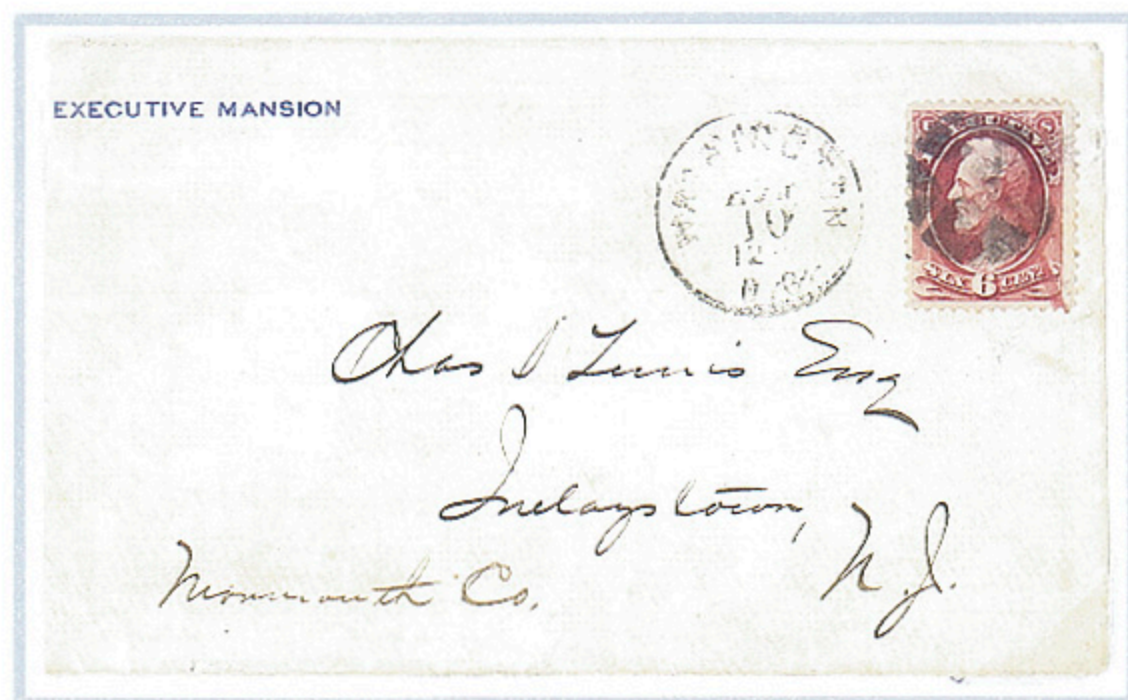 EXECUTIVE MANSION
WASHINGTON
10
12
EXECUTIVE
SIX 6 CENTS
Chas Lewis Esq
Imlaystown,
N.J.
Monmouth Co.